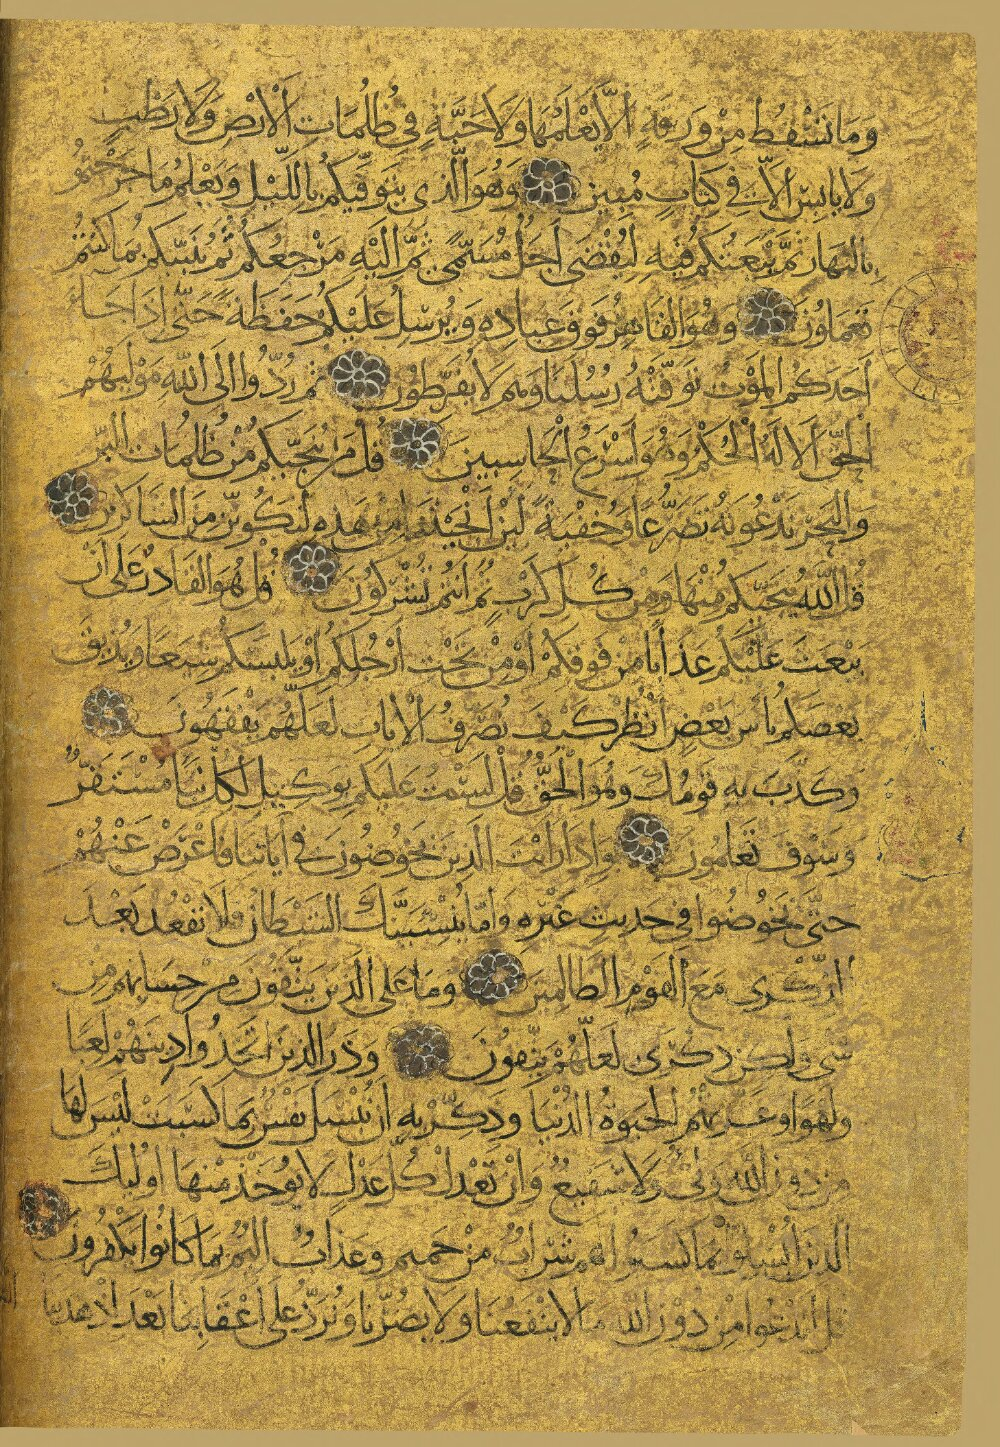 وَمَا تَسْقُطُ مِنْ وَرَقَةٍ اِلَّا يَعْلَمُهَا وَلَا حَبَّةٍ فِي ظُلُمَاتِ الْاَرْضِ وَلَا رَطْبٍ
وَلَا يَابِسٍ اِلَّا فِي كِتَابٍ مُبِينٍ وَهُوَ الَّذِي يَتَوَفّٰيكُمْ بِاللَّيْلِ وَيَعْلَمُ مَا جَرَحْتُمْ
بِالنَّهَارِ ثُمَّ يَبْعَثُكُمْ فِيهِ لِيُقْضٰى اَجَلٌ مُسَمًّى ثُمَّ اِلَيْهِ مَرْجِعُكُمْ ثُمَّ يُنَبِّئُكُمْ بِمَا كُنْتُمْ
تَعْمَلُونَ وَهُوَ الْقَاهِرُ فَوْقَ عِبَادِهِ وَيُرْسِلُ عَلَيْكُمْ حَفَظَةً حَتّٰى اِذَا جَاءَ
اَحَدَكُمُ الْمَوْتُ تَوَفَّتْهُ رُسُلُنَا وَهُمْ لَا يُفَرِّطُونَ ثُمَّ رُدُّوا اِلَى اللّٰهِ مَوْلٰيهُمُ
الْحَقِّ اَلَا لَهُ الْحُكْمُ وَهُوَ اَسْرَعُ الْحَاسِبِينَ قُلْ مَنْ يُنَجِّيكُمْ مِنْ ظُلُمَاتِ الْبَرِّ
وَالْبَحْرِ تَدْعُونَهُ تَضَرُّعًا وَخُفْيَةً لَئِنْ اَنْجَيْتَنَا مِنْ هٰذِهِ لَنَكُونَنَّ مِنَ الشَّاكِرِينَ
قُلِ اللّٰهُ يُنَجِّيكُمْ مِنْهَا وَمِنْ كُلِّ كَرْبٍ ثُمَّ اَنْتُمْ تُشْرِكُونَ قُلْ هُوَ الْقَادِرُ عَلٰى اَنْ
يَبْعَثَ عَلَيْكُمْ عَذَابًا مِنْ فَوْقِكُمْ اَوْ مِنْ تَحْتِ اَرْجُلِكُمْ اَوْ يَلْبِسَكُمْ شِيَعًا وَيُذِيقَ
بَعْضَكُمْ بَأْسَ بَعْضٍ اُنْظُرْ كَيْفَ نُصَرِّفُ الْاٰيَاتِ لَعَلَّهُمْ يَفْقَهُونَ
وَكَذَّبَ بِهِ قَوْمُكَ وَهُوَ الْحَقُّ قُلْ لَسْتُ عَلَيْكُمْ بِوَكِيلٍ لِكُلِّ نَبَاٍ مُسْتَقَرٌّ
وَسَوْفَ تَعْلَمُونَ وَاِذَا رَاَيْتَ الَّذِينَ يَخُوضُونَ فِي اٰيَاتِنَا فَاَعْرِضْ عَنْهُمْ
حَتّٰى يَخُوضُوا فِي حَدِيثٍ غَيْرِهِ وَاِمَّا يُنْسِيَنَّكَ الشَّيْطَانُ فَلَا تَقْعُدْ بَعْدَ
الذِّكْرٰى مَعَ الْقَوْمِ الظَّالِمِينَ وَمَا عَلَى الَّذِينَ يَتَّقُونَ مِنْ حِسَابِهِمْ مِنْ
شَيْءٍ وَلٰكِنْ ذِكْرٰى لَعَلَّهُمْ يَتَّقُونَ وَذَرِ الَّذِينَ اتَّخَذُوا دِينَهُمْ لَعِبًا
وَلَهْوًا وَغَرَّتْهُمُ الْحَيٰوةُ الدُّنْيَا وَذَكِّرْ بِهِ اَنْ تُبْسَلَ نَفْسٌ بِمَا كَسَبَتْ لَيْسَ لَهَا
مِنْ دُونِ اللّٰهِ وَلِيٌّ وَلَا شَفِيعٌ وَاِنْ تَعْدِلْ كُلَّ عَدْلٍ لَا يُؤْخَذْ مِنْهَا اُولٰئِكَ
الَّذِينَ اُبْسِلُوا بِمَا كَسَبُوا لَهُمْ شَرَابٌ مِنْ حَمِيمٍ وَعَذَابٌ اَلِيمٌ بِمَا كَانُوا يَكْفُرُونَ
قُلْ اَنَدْعُوا مِنْ دُونِ اللّٰهِ مَا لَا يَنْفَعُنَا وَلَا يَضُرُّنَا وَنُرَدُّ عَلٰى اَعْقَابِنَا بَعْدَ اِذْ هَدٰينَا